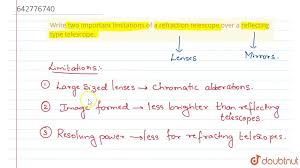 642776740
Write two important limitations of a refraction telescope over a reflecting
type telescope.
Lenses
Mirrors.
Limitations:-
① Large sized lenses → Chromatic aberrations.
② Image formed → less brighter than reflecting
telescopes.
③ Resolving power → less for refracting telescopes.
doubtnut